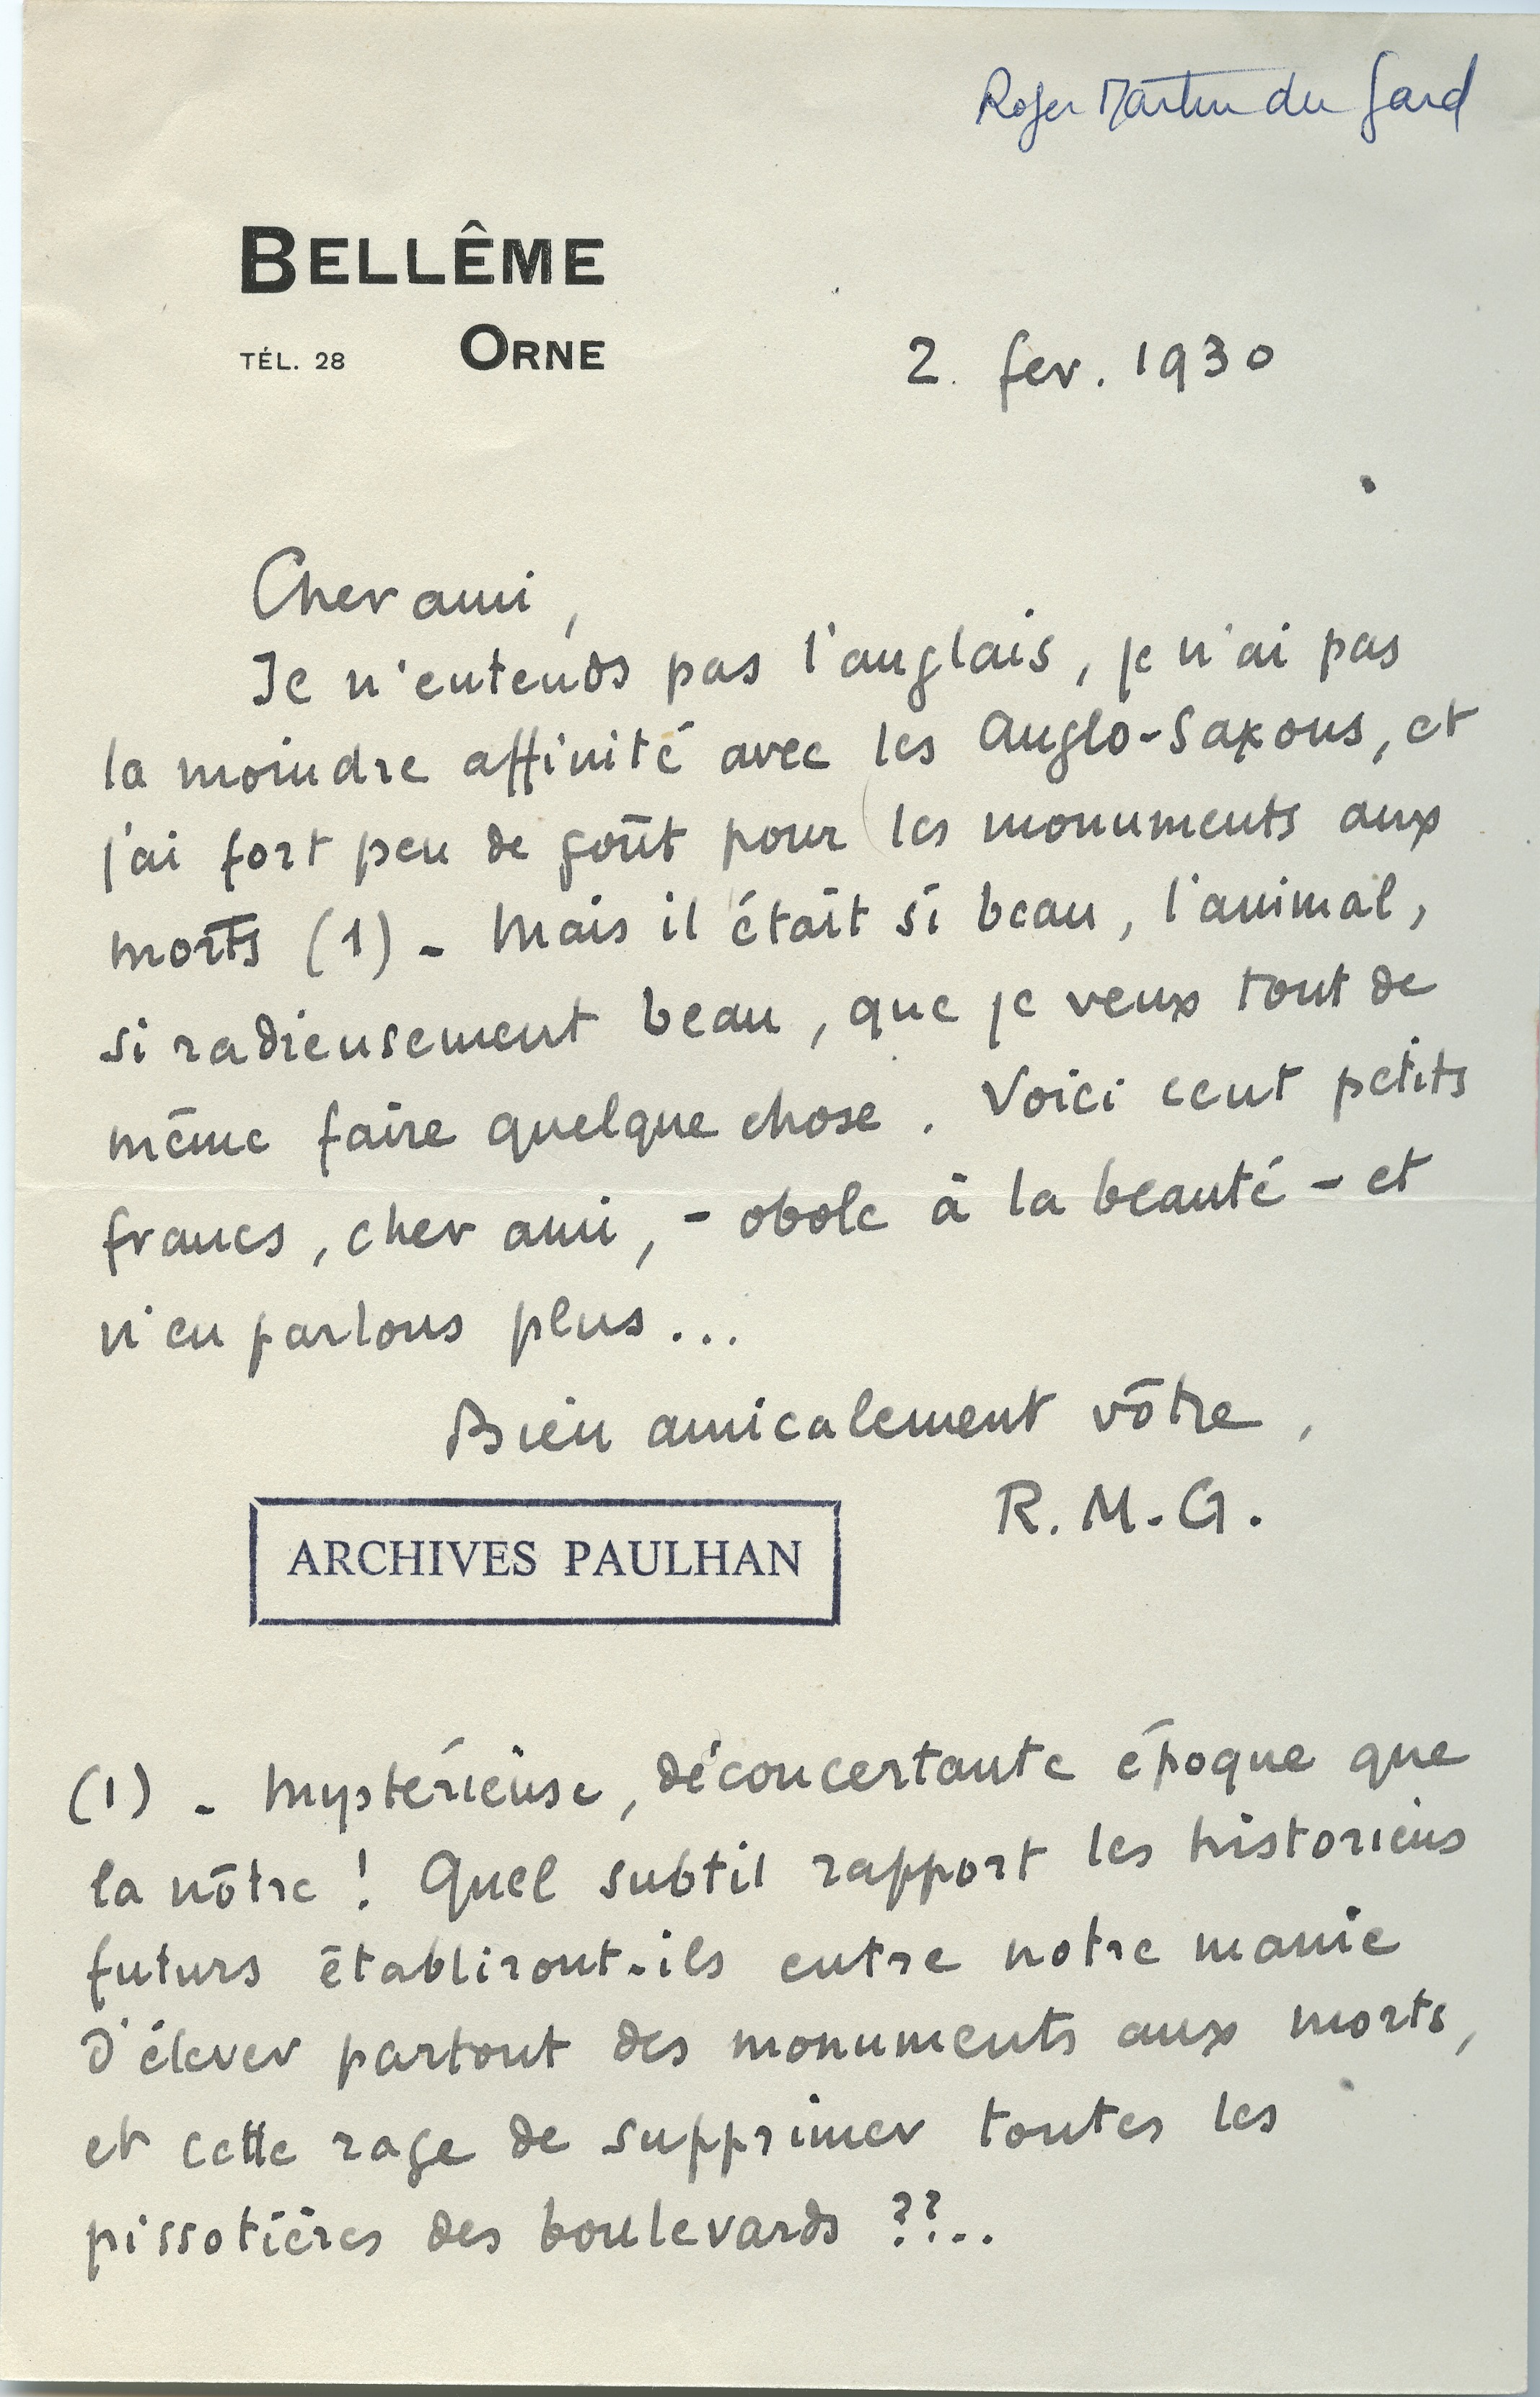 Roger Martin du Gard
BELLÊME
TÉL. 28 ORNE
2. fev. 1930
Cher ami,
Je n'entends pas l'anglais, je n'ai pas
la moindre affinité avec les Anglo-Saxons, et
j'ai fort peu de goût pour les monuments aux
morts (1) - Mais il était si beau, l'animal,
si radieusement beau, que je veux tout de
même faire quelque chose. Voici cent petits
francs, cher ami, - obole à la beauté - et
n'en parlons plus...
Bien amicalement vôtre,
R. M. G.
ARCHIVES PAULHAN
(1) - Mystérieuse, déconcertante époque que
la nôtre ! Quel subtil rapport les historiens
futurs établiront-ils entre notre manie
d'élever partout des monuments aux morts,
et cette rage de supprimer toutes les
pissotières des boulevards ??..